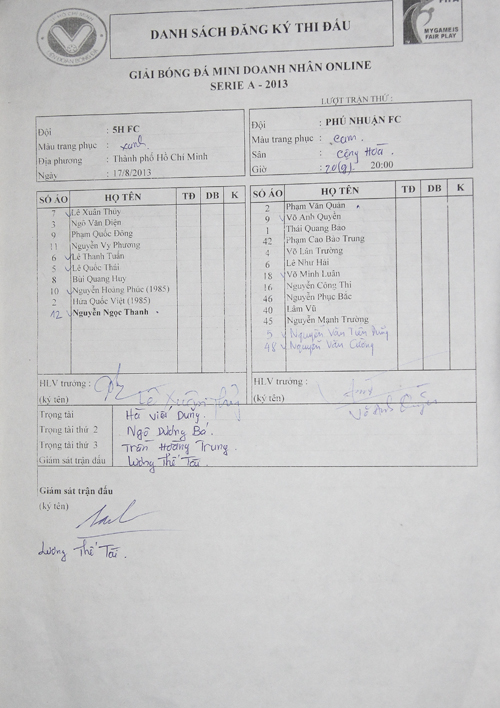 DANH SÁCH ĐĂNG KÝ THI ĐẤU
MYGAMEIS
FAIR PLAY
GIẢI BÓNG ĐÁ MINI DOANH NHÂN ONLINE
SERIE A - 2013
LƯỢT TRẬN THỨ :
Đội : 5H FC
Màu trang phục : xanh
Địa phương : Thành phố Hồ Chí Minh
Ngày : 17/8/2013
Đội : PHÚ NHUẬN FC
Màu trang phục : cam
Sân : Cộng Hoà
Giờ : 20:00
SỐ ÁO HỌ TÊN TĐ DB K
7 Lê Xuân Thủy
3 Ngô Văn Diện
9 Phạm Quốc Đông
11 Nguyễn Vy Phương
6 Lê Thanh Tuấn
5 Lê Quốc Thái
8 Bùi Quang Huy
10 Nguyễn Hoàng Phúc (1985)
2 Hứa Quốc Việt (1985)
12 Nguyễn Ngọc Thanh
SỐ ÁO HỌ TÊN TĐ DB K
2 Phạm Văn Quân
9 Võ Anh Quyền
1 Thái Quang Bảo
42 Phạm Cao Bảo Trung
4 Võ Lân Trường
6 Lê Như Hải
18 Võ Minh Luân
16 Nguyễn Công Thi
46 Nguyễn Phục Bắc
40 Lâm Vũ
45 Nguyễn Mạnh Trường
5 Nguyễn Văn Tiến
48 Nguyễn Văn Cường
HLV trưởng :
(ký tên)
HLV trưởng :
(ký tên)
Trọng tài Hà Viết Dũng.
Trọng tài thứ 2 Ngô Dương Bá.
Trọng tài thứ 3 Trần Hoàng Trung.
Giám sát trận đấu Lương Thế Tài.
Giám sát trận đấu
(ký tên)
Lương Thế Tài.